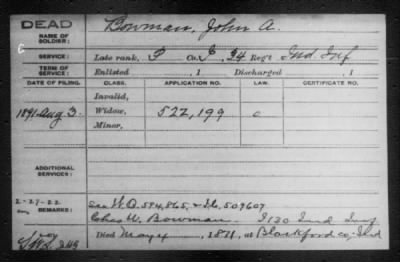 DEAD
NAME OF SOLDIER: Bowman, John A.
SERVICE: Late rank, P Co. I, 34 Reg't Ind Inf
TERM OF SERVICE: Enlisted , 1 Discharged , 1
DATE OF FILING. CLASS. APPLICATION NO. LAW. CERTIFICATE NO.
Invalid,
1891 Aug 3. Widow, 522,199 C
Minor,
ADDITIONAL SERVICES:
2-27-22
REMARKS: See W.O. 594,865, & I.C. 509607
Chas W. Bowman I 130 Ind Inf
Died May 1871, at Blackford co, Ind